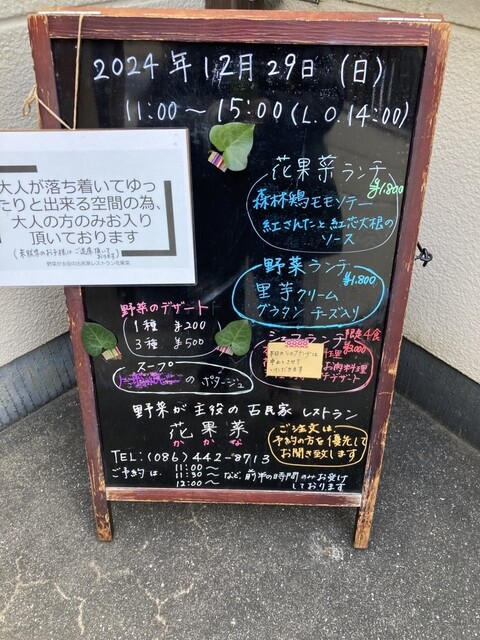 2024年12月29日(日)
11:00～15:00(L.O.14:00)
大人が落ち着いてゆっ
たりと出来る空間の為、
大人の方のみお入り
頂いております
(未就学のお子様はご遠慮頂いて
おります)
野菜が主役の古民家レストラン花果菜
花果菜ランチ
¥1.800
森林鶏モモソテー
紅さんたんと紅芯大根の
ソース
野菜ランチ
¥1.800
里芋クリーム
グラタン チーズ入り
野菜のデザート
1種 ¥200
3種 ¥500
スープ
のポタージュ
シェフランチ
限定4食
¥3,000
本日のシェフランチは
中止とさせて
いただきます
お肉料理
デザート
野菜が主役の古民家レストラン
花果菜
かかな
TEL:(086)442-8713
ご予約は、
11:00～
11:30～
12:00～
など、前半の時間のみお受け
しております
ご注文は、
予約の方を優先して
お聞き致します